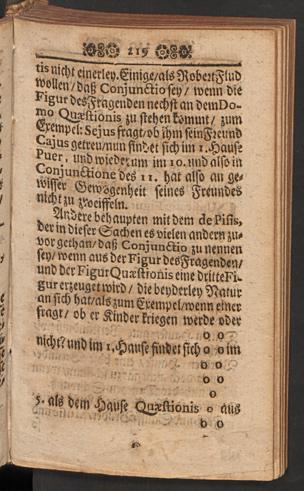 219
tis nicht einerley. Einige/ als Robert Flud
wollen/ daß Conjunctio sey/ wenn die
Figur des Fragenden nechst an dem Do-
mo Quæstionis zu stehen kommt/ zum
Exempel: Sejus fragt/ ob ihm sein Freund
Cajus getreu/ nun findet sich im 1. Hause
Puer, und wiederum im 10. und also in
Conjunctione des 11. hat also an ge-
wisser Gewogenheit seines Freundes
nicht zu zweiffeln.
Andere behaupten mit dem de Pisis,
der in dieser Sachen es vielen andern zu-
vor gethan/ daß Conjunctio zu nennen
sey/ wenn aus der Figur des Fragenden/
und der Figur Quæstionis eine dritte Fi-
gur erzeuget wird/ die beyderley Natur
an sich hat/ als zum Exempel/ wenn einer
fragt/ ob er Kinder kriegen werde oder
o o
nicht? und im 1. Hause findet sich o o im
o o
o
5. als dem Hause Quæstionis o aus
o o